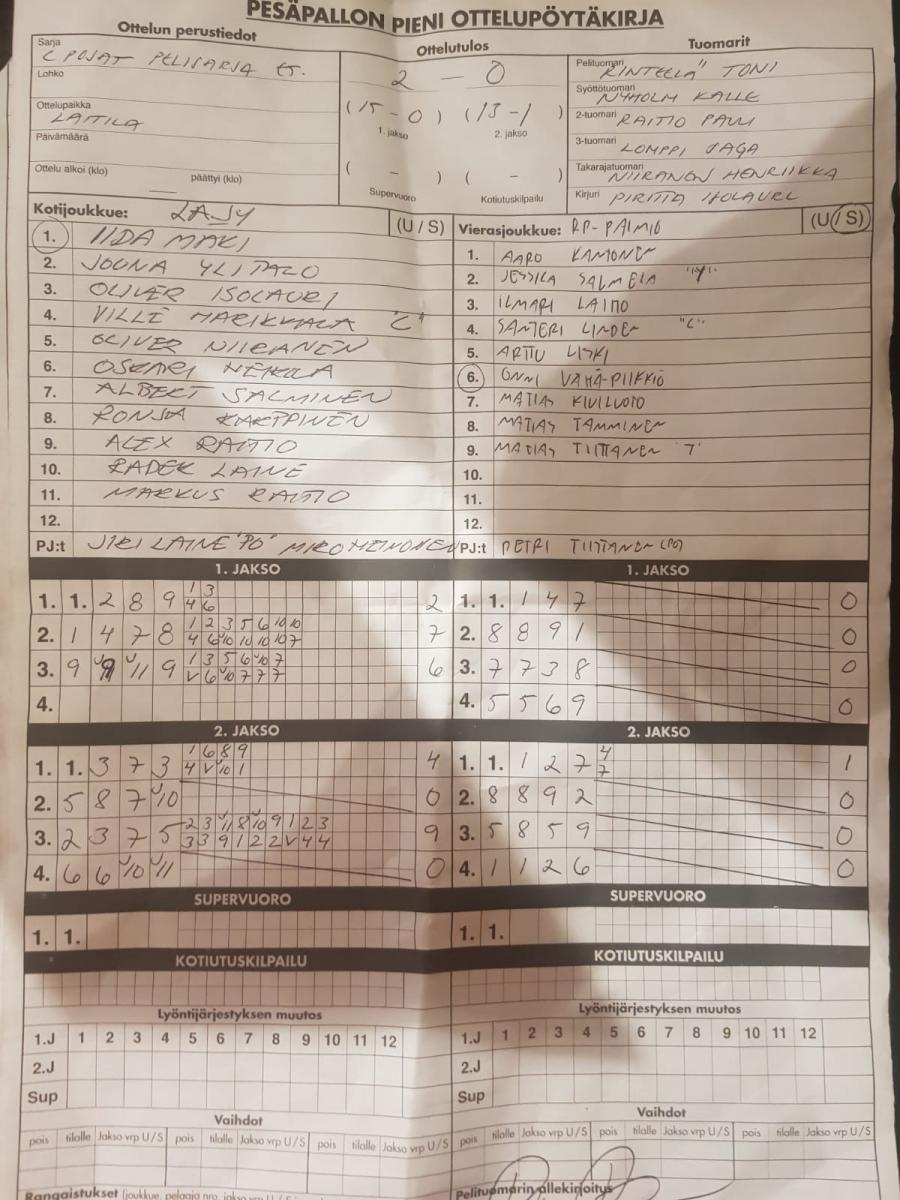 PESÄPALLON PIENI OTTELUPÖYTÄKIRJA
Ottelun perustiedot
Sarja
C POJAT PELISARJA ET.
Lohko
Ottelupaikka
LAITILA
Päivämäärä
Ottelu alkoi (klo) päättyi (klo)
Ottelutulos
2 - 0
(15 - 0) (13 - 1)
1. jakso 2. jakso
( - ) ( - )
Supervuoro Kotiutuskilpailu
Tuomarit
Pelituomari TONI
Syöttötuomari
NYHOLM KALLE
2-tuomari RAITIO PAULI
3-tuomari LOMPPI JAGA
Takarajatuomari
NIIRANEN HENRIIKKA
Kirjuri PIRITTA ISOLAURI
Kotijoukkue: LAJY (U / S)
1. IIDA MÄKI
2. JOONA YLITALO
3. OLIVER ISOLAURI
4. VILLE "C"
5. OLIVER NIIRANEN
6. OSKARI HEIKOLA
7. ALBERT SALMINEN
8. RONJA KARPPINEN
9. ALEX RAITIO
10. RADEK LAINE
11. MARKUS RAITIO
12.
PJ:t JIRI LAINE "PO" MIRO HEINONEN
Vierasjoukkue: RP-PAIMIO (U / S)
1. AARO KAMONEN
2. JESSICA SALMELA "Y"
3. ILMARI LAIHO
4. SANTERI LINDEN "C"
5. ARTTU LISKI
6. ONNI VÄHÄ-PIIKKIÖ
7. MATIAS KIVILUOTO
8. MATIAS TAMMINEN
9. MATIAS TIITTANEN "7"
10.
11.
12.
PJ:t PETRI TIITTANEN (PO)
1. JAKSO
1. 1. 2 8 9 1 3 2
4 6
2. 1 4 7 8 1 2 3 5 6 10 10 7
4 6 10 10 10 10 7
3. 9 9 11 9 1 3 5 6 10 7 6
V 6 10 7 7 7
4.
1. JAKSO
1. 1. 1 4 7 0
2. 8 8 9 1 0
3. 7 7 3 8 0
4. 5 5 6 9 0
2. JAKSO
1. 1. 3 7 3 1 6 8 9 4
4 V 10 1
2. 5 8 7 10 0
3. 2 3 7 5 2 3 11 8 10 9 1 2 3 9
3 3 9 1 2 2 V 4 4
4. 6 6 10 11 0
2. JAKSO
1. 1. 1 2 7 4 1
7
2. 8 8 9 2 0
3. 5 8 5 9 0
4. 1 1 2 6 0
SUPERVUORO
1. 1.
SUPERVUORO
1. 1.
KOTIUTUSKILPAILU
KOTIUTUSKILPAILU
Lyöntijärjestyksen muutos
1.J 1 2 3 4 5 6 7 8 9 10 11 12
2.J
Sup
Lyöntijärjestyksen muutos
1.J 1 2 3 4 5 6 7 8 9 10 11 12
2.J
Sup
Vaihdot
pois tilalle Jakso vrp U / S pois tilalle Jakso vrp U / S pois tilalle Jakso vrp U / S
Vaihdot
pois tilalle Jakso vrp U / S pois tilalle Jakso vrp U / S pois tilalle Jakso vrp U / S
Rangaistukset (joukkue, pelaaja nro, jakso vrp U / S
Pelituomarin allekirjoitus